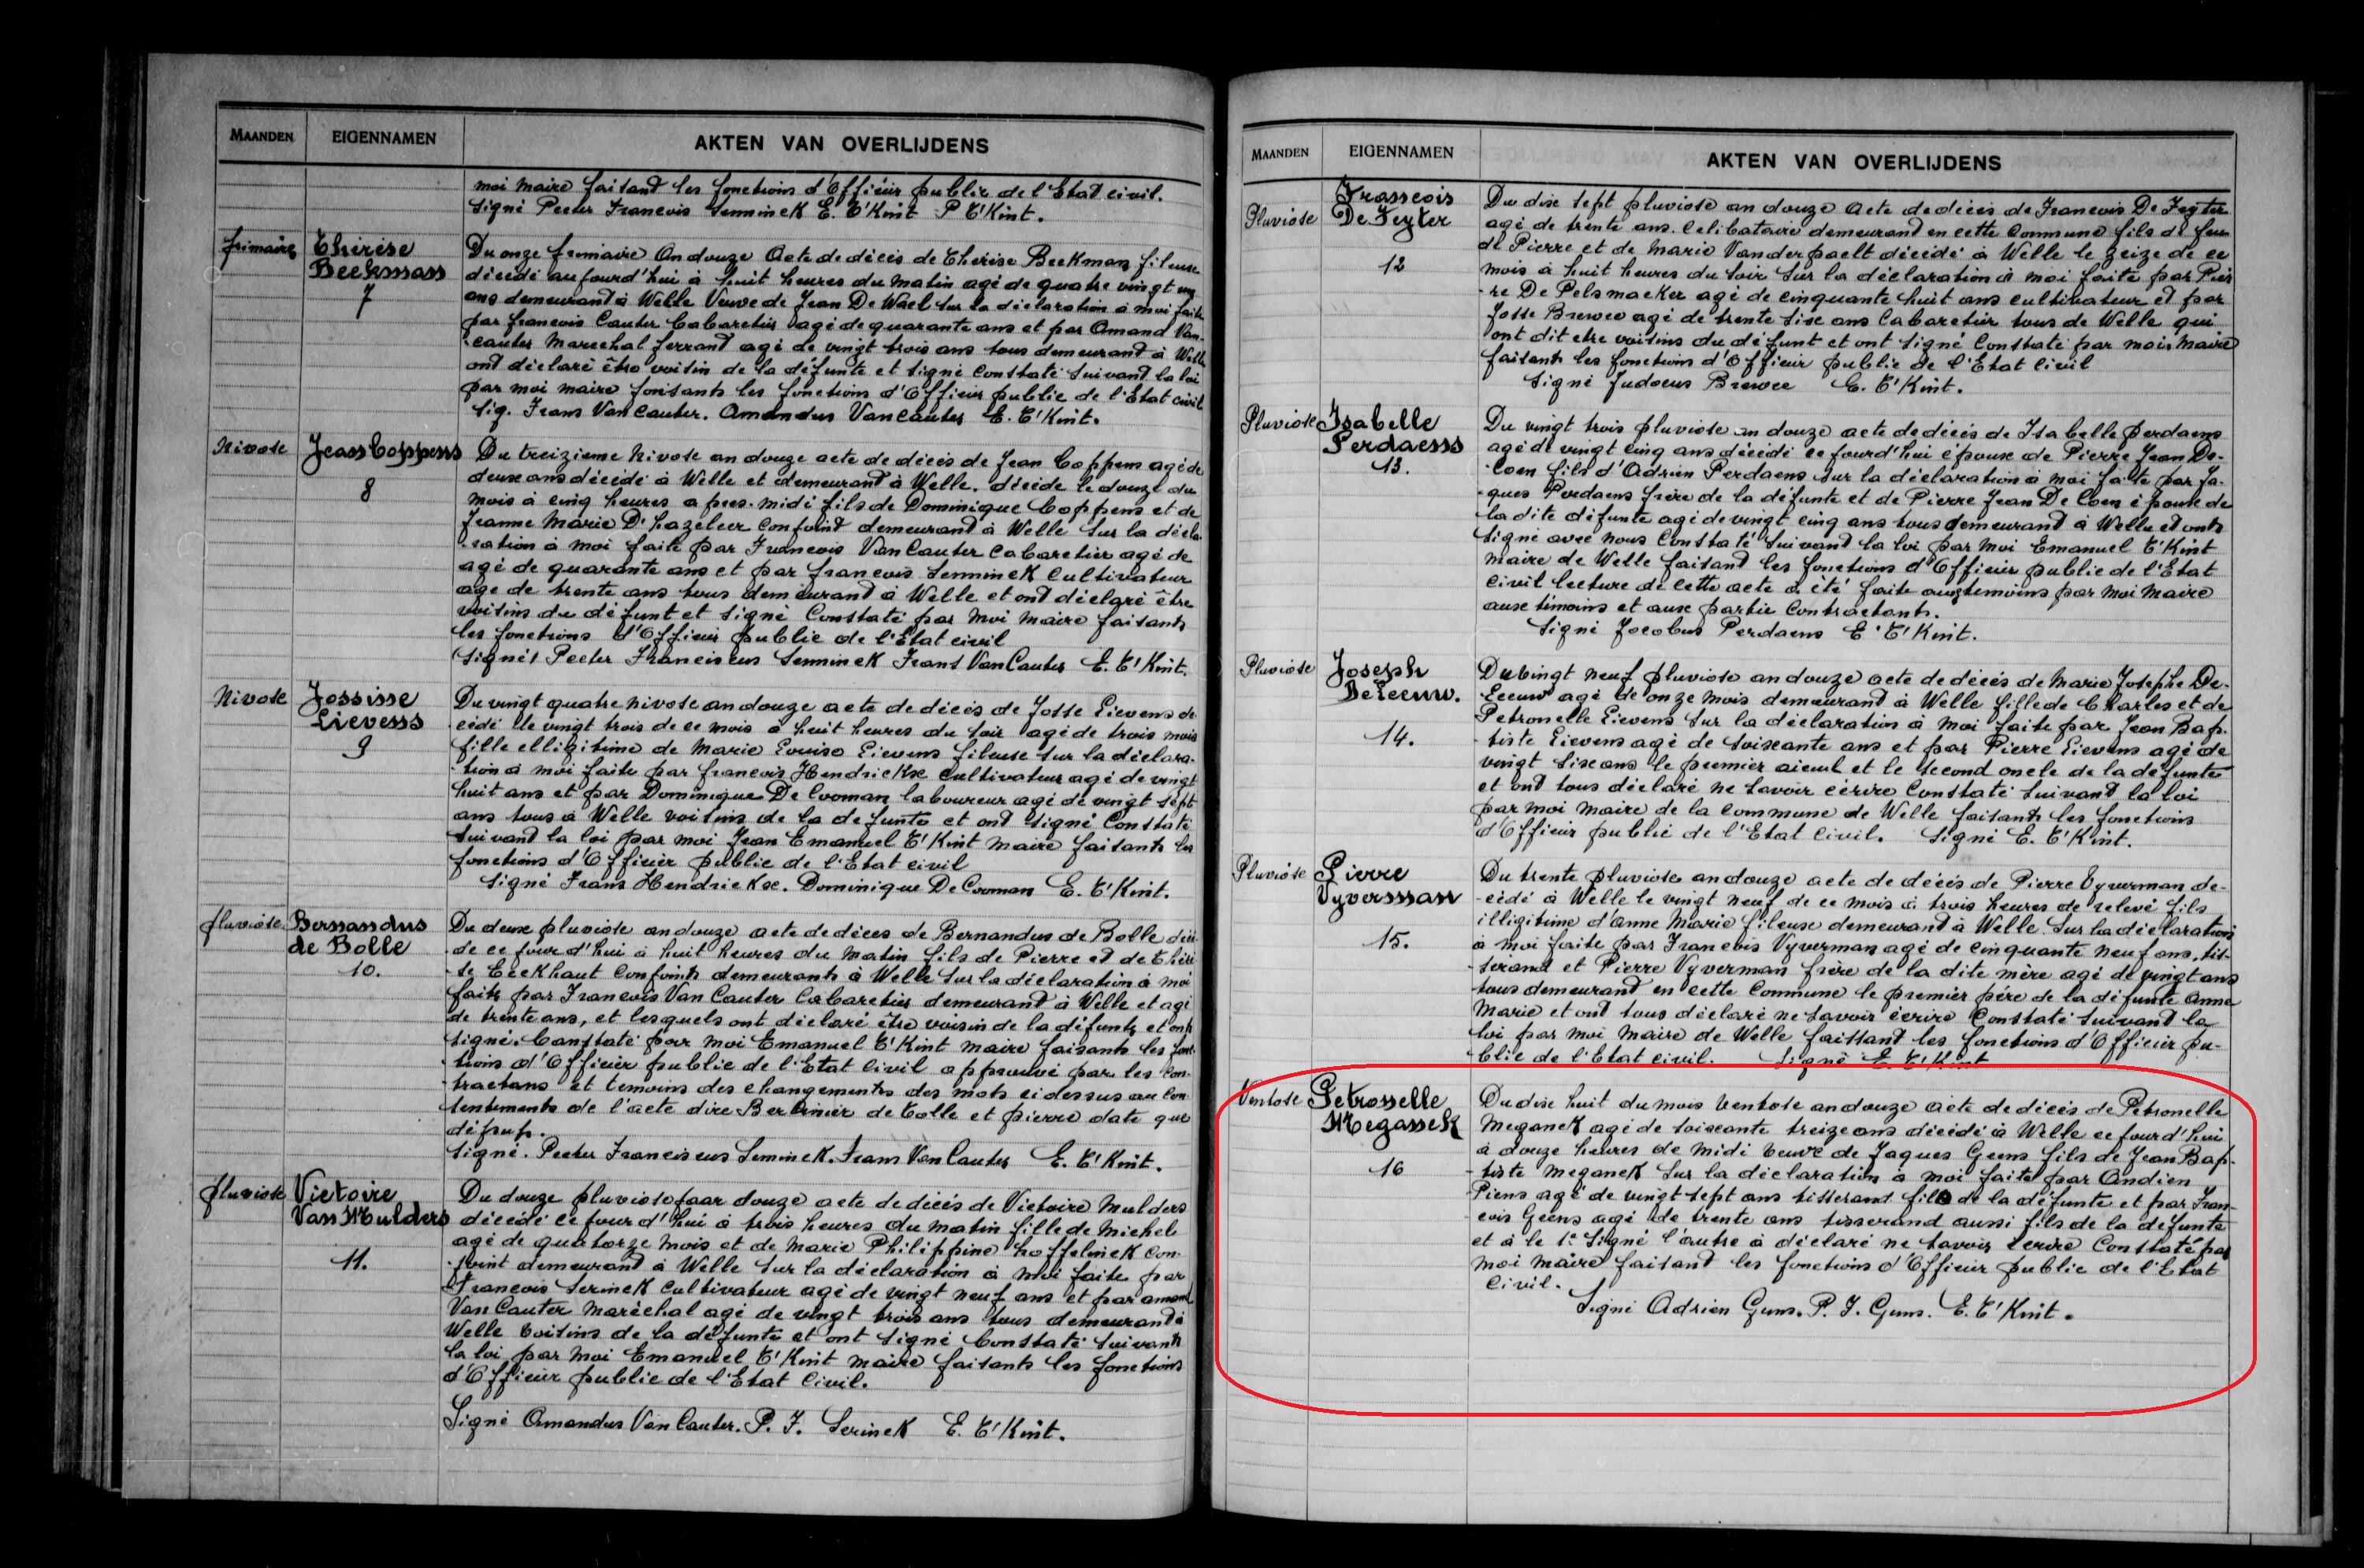 MAANDEN EIGENNAMEN AKTEN VAN OVERLIJDENS
moi maire faisant les fonctions d'Officier public de l'Etat civil.
Signé Peeter Francois Semminck E. T'Kint P T'Kint.
frimaire
Thérèse
Beekmans
7
Du onze frimaire An douze Acte de décès de Therèse Beekmans fileuse
décédé aujourd'hui à huit heures du matin agé de quatre vingt un
ans demeurant à Welle Veuve de Jean De Wael sur la déclaration à moi faite
par francois Cauter Cabaretier agé de quarante ans et par Amand Van-
cauter Marechal ferrand agé de vingt trois ans tous demeurant à Welle
ont déclaré être voisin de la défunte et signé Constaté suivant la loi
par moi maire faisants les fonctions d'Officier public de l'Etat civil
Sig. Frans Van Cauter. Amandus Vancauter E. T'Kint.
Nivose
Jean Coppens
8
Du treizieme Nivose an douze acte de décès de Jean Coppens agé de
deux ans décédé à Welle et demeurant à Welle. décédé le douze du
mois à cinq heures apres-midi fils de Dominique Coppens et de
Jeanne Marie D'hazeleer Conjoint demeurant à Welle sur la décla-
-ration à moi faite par Francois Van Cauter Cabaretier agé de
agé de quarante ans et par francois Semminck Cultivateur
age de trente ans tous demeurant à Welle et ont déclaré être
voisins du défunt et signé Constaté par moi maire faisants
les fonctions d'Officier public de l'Etat civil
Signé, Peeter Franciscus Semminck Frans Van Cauter E. T'Kint.
Nivose
Jossine
Lievens
9
Du vingt quatre nivose an douze acte de décès de Josse Lievens dé-
-cédé le vingt trois de ce mois à huit heures du soir agé de trois mois
fille elligitime de Marie Louise Lievens fileuse sur la déclara-
-tion à moi faite par francois Hendrickx cultivateur agé de vingt
huit ans et par Dominique De Cooman laboureur agé de vingt sept
ans tous à Welle voisins de la defunte et ont signé Constaté
suivant la loi par moi Jean Emanuel T'Kint maire faisants les
fonctions d'Officier public de l'Etat civil
Signé Frans Hendrickx. Dominique De Cooman E. T'Kint.
pluviose
Bernandus
de Bolle
10.
Du deux pluviose an douze acte de décès de Bernandus de Bolle décé-
-de ce jour d'hui à huit heures du matin fils de Pierre et de Thérè-
-se Eeckhaut Conjoints demeurants à Welle sur la déclaration à moi
faite par Francois Van Cauter Cabaretier demeurant à Welle et agé
de trente ans, et lesquels ont déclaré être voisin de la défunte et ont
signé. Constaté par moi Emanuel T'Kint maire faisants les fonc-
-tions d'Officier public de l'Etat civil approuvé par les Con-
-tractans et temoins des changements des mots ci dessus au Con-
tentements de l'acte dire de Bolle et pierre date que
Signé. Peeter Franciscus Semminck. Frans Van Cauter E. T'Kint.
pluviose
Victoire
Van Mulders
11.
Du douze pluviose jaar douze acte de décès de Victoire Mulders
décédé ce jour d'hui à trois heures du matin fille de Michel
agé de quatorze mois et de Marie Philippine Hoffelinck Con-
-joint demeurant à Welle sur la déclaration à moi faite par
Francois Serinck Cultivateur agé de vingt neuf ans et par amand
Van Cauter Maréchal agé de vingt trois ans tous demeurant à
Welle voisins de la défunte et ont signé Constaté suivants
la loi par moi Emanuel T'Kint maire faisants les fonctions
d'Officier public de l'Etat civil.
Signé Amandus Van Cauter. P. F. Serinck E. T'Kint.
MAANDEN EIGENNAMEN AKTEN VAN OVERLIJDENS
Pluviose
Franscois
De Feyter
12
Du dix sept pluviose an douze Acte de décès de Francois De Feyter
agé de trente ans. Celibataire demeurant en cette Commune fils de feu
de Pierre et de Marie Vanderpaelt décédé à Welle le zeize de ce
mois à huit heures du soir sur la déclaration à moi faite par Pier-
-re De Pelsmaeker agé de cinquante huit ans cultivateur et par
Josse Brewee agé de trente sixe ans Cabaretier tous de Welle qui
ont dit etre voisins du défunt et ont signé Constaté par moi maire
faisants les fonctions d'Officier public de l'Etat civil
Signé Judocus Brewee E. T'Kint.
Pluviose
Isabelle
Perdaens
13.
Du vingt trois pluviose an douze acte de décès de Isabelle Perdaens
agé de vingt cinq ans décédé ce jourd'hui épouse de Pierre Jean De-
-Coen fils d'Adrien Perdaens sur la déclaration à moi faite par Ja-
-ques Perdaens frère de la défunte et de Pierre Jean De Coen épouse de
la dite défunte agé de vingt cinq ans tous demeurant à Welle et onts
signé avec nous Constaté suivant la loi par moi Emanuel T'Kint
maire de Welle faisant les fonctions d'Officier public de l'Etat
civil lecture de cette acte a été faite aux temoins par moi maire
aux témoins et aux partie Contractants.
Signé Jocobus Perdaens E. T'Kint.
Pluviose
Joseph
De Leeuw.
14.
Du vingt neuf pluviose an douze acte de décès de Marie Josephe De-
-Leeuw agé de onze mois demeurant à Welle fille de Charles et de
Petronelle Lievens sur la déclaration à moi faite par Jean Bap-
-tiste Lievens agé de soixante ans et par Pierre Lievens agé de
vingt sixe ans le premier aieul et le second oncle de la défunte
et ont tous déclaré ne savoir écrire Constaté suivant la loi
par moi maire de la commune de Welle faisants les fonctions
d'Officier public de l'Etat civil. Signé E. T'Kint.
Pluviose
Pierre
Vyverman
15.
Du trente pluviose an douze acte de décès de Pierre Vyverman dé-
-cédé à Welle le vingt neuf de ce mois à trois heures de relevé fils
illigitime d'Anne Marie fileuse demeurant à Welle. Sur la déclaration
à moi faite par Francois Vyverman agé de cinquante neuf ans, tis-
-serand et Pierre Vyverman frère de la dite mère agé de vingt ans
tous demeurant en cette Commune le premier père de la défunte Anne
Marie et ont tous déclaré ne savoir écrire Constaté suivant la
loi par moi maire de Welle faissant les fonctions d'Officier pu-
-blic de l'Etat civil. Signé E. T'Kint
Ventose
Petronelle
Meganck
16
Du dix huit du mois Ventose an douze acte de décès de Petronelle
Meganck agé de soixante treize ans décédé à Welle ce jourd'hui
à douze heures de midi veuve de Jaques Geens fils de Jean Bap-
-tiste Meganck sur la déclaration à moi faite par Andien
Piens agé de vingt sept ans tisserand fils de la défunte et par Fran-
-cois Geens agé de trente ans tisserand aussi fils de la défunte
et à le 1e signé l'autre à déclaré ne savoir écrire Constaté par
moi maire faisant les fonctions d'Officier public de l'Etat
civil.
Signé Adrien Guns. P. J. Guns. E. T'Kint.